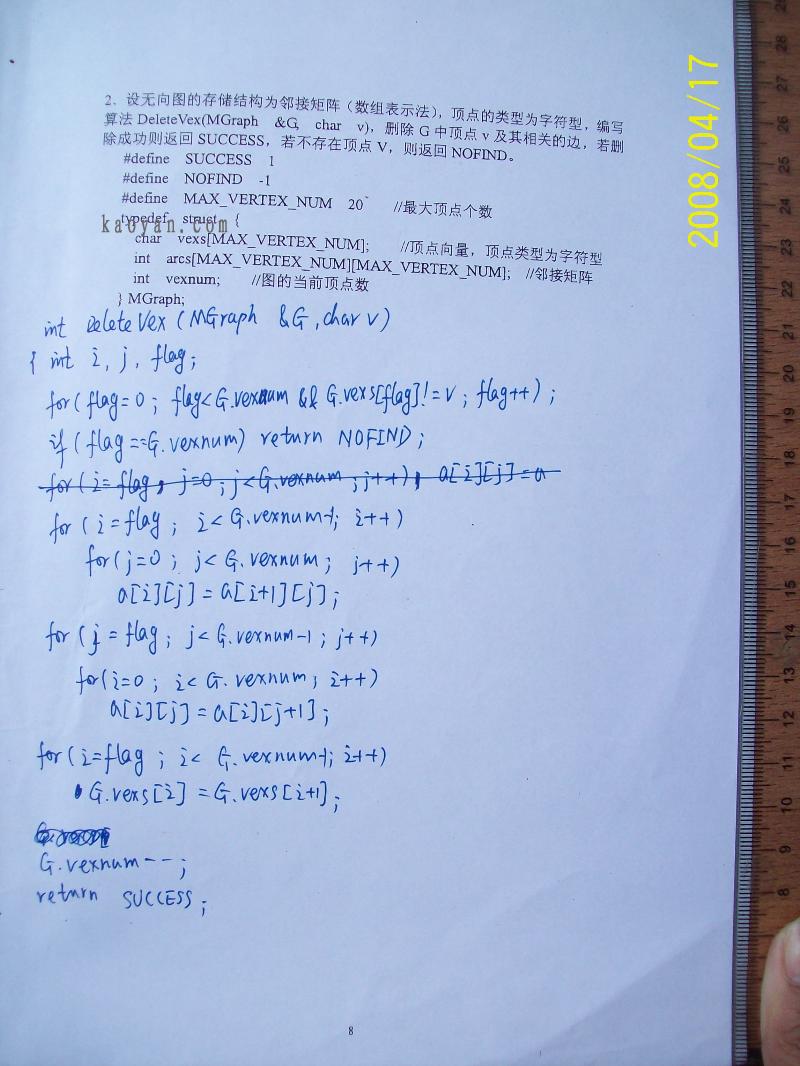 2008/04/17
2、设无向图的存储结构为邻接矩阵（数组表示法），顶点的类型为字符型，编写
算法 DeleteVex(MGraph &G, char v)，删除 G 中顶点 v 及其相关的边，若删
除成功则返回 SUCCESS，若不存在顶点 V，则返回 NOFIND。
#define SUCCESS 1
#define NOFIND -1
#define MAX_VERTEX_NUM 20 //最大顶点个数
typedef struct {
kaoyan.com
char vexs[MAX_VERTEX_NUM]; //顶点向量，顶点类型为字符型
int arcs[MAX_VERTEX_NUM][MAX_VERTEX_NUM]; //邻接矩阵
int vexnum; //图的当前顶点数
} MGraph;
int DeleteVex (MGraph &G, char v)
{ int i, j, flag;
for (flag=0; flag<G.vexnum && G.vexs[flag]!=v; flag++);
if (flag==G.vexnum) return NOFIND;
for (i=flag, j=0; j<G.vexnum; j++), a[i][j]=a
for (i=flag; i<G.vexnum-1; i++)
for (j=0; j<G.vexnum; j++)
a[i][j]=a[i+1][j];
for (j=flag; j<G.vexnum-1; j++)
for (i=0; i<G.vexnum; i++)
a[i][j]=a[i][j+1];
for (i=flag; i<G.vexnum-1; i++)
G.vexs[i]=G.vexs[i+1];
G.vexnum--;
return SUCCESS;
8
28
27
26
25
24
23
22
21
20
19
18
17
16
15
14
13
12
11
10
9
8